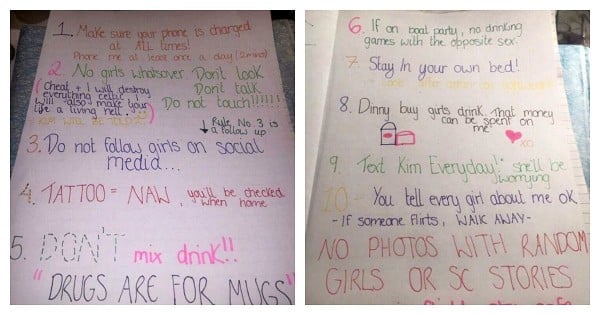 1. Make sure your phone is charged
at ALL times!
Phone me at least once a day (2 mins)
2. No girls whatsover Don't look
Don't talk
Do not touch!!!!!!!
(Cheat + I will destroy
everything celtic
will also make your
life a living hell...)
KIM WILL BE TOLD
↓ Rule No. 3 is
a follow up
3. Do not follow girls on social
media...
4. TATTOO = NAW, you'll be checked
when home
5. DON'T mix drink!!
"DRUGS ARE FOR MUGS"
6. If on boat party, no drinking
games with the opposite sex.
7. Stay In your own bed!
8. Dinny buy gurls drink. That money
can be spent on
me
xo
9. Text Kim Everyday! She'll be
worrying
10- You tell every girl about me ok
- If someone flirts, WALK AWAY -
NO PHOTOS WITH RANDOM
GIRLS OR SC STORIES